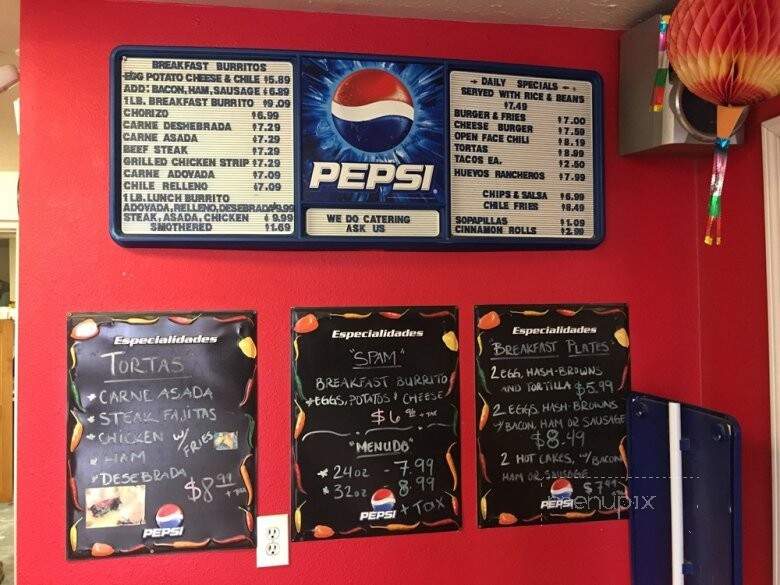 BREAKFAST BURRITOS
EGG POTATO CHEESE & CHILE $5.89
ADD: BACON, HAM, SAUSAGE $6.89
1LB. BREAKFAST BURRITO $9.09
CHORIZO $6.99
CARNE DESHEBRADA $7.29
CARNE ASADA $7.29
BEEF STEAK $7.29
GRILLED CHICKEN STRIP $7.29
CARNE ADOVADA $7.09
CHILE RELLENO $7.09
1LB. LUNCH BURRITO
ADOVADA, RELLENO, DESEBRADA $9.99
STEAK, ASADA, CHICKEN $9.99
SMOTHERED $1.69
PEPSI
WE DO CATERING
ASK US
DAILY SPECIALS
SERVED WITH RICE & BEANS
$7.49
BURGER & FRIES $7.00
CHEESE BURGER $7.59
OPEN FACE CHILI $8.19
TORTAS $8.99
TACOS EA. $2.50
HUEVOS RANCHEROS $7.99
CHIPS & SALSA $6.99
CHILE FRIES $8.49
SOPAPILLAS $1.09
CINNAMON ROLLS $2.99
Especialidades
TORTAS
* CARNE ASADA
* STEAK FAJITAS
* CHICKEN W/ FRIES
* HAM
* DESEBRADA
$8.99 + TAX
PEPSI
Especialidades
"SPAM"
BREAKFAST BURRITO
*EGGS, POTATOS & CHEESE
+ TAX
"MENUDO"
* 24oz - 7.99
* 32oz 8.99
+ TAX
PEPSI
Especialidades
"BREAKFAST PLATES"
2 EGG, HASH-BROWNS
AND TORTILLA $5.99
2 EGGS, HASH-BROWNS
W/ BACON, HAM OR SAUSAGE
$8.49
2 HOT CAKES, W/ BACON
HAM OR SAUSAGE
$7.99
PEPSI
menupix